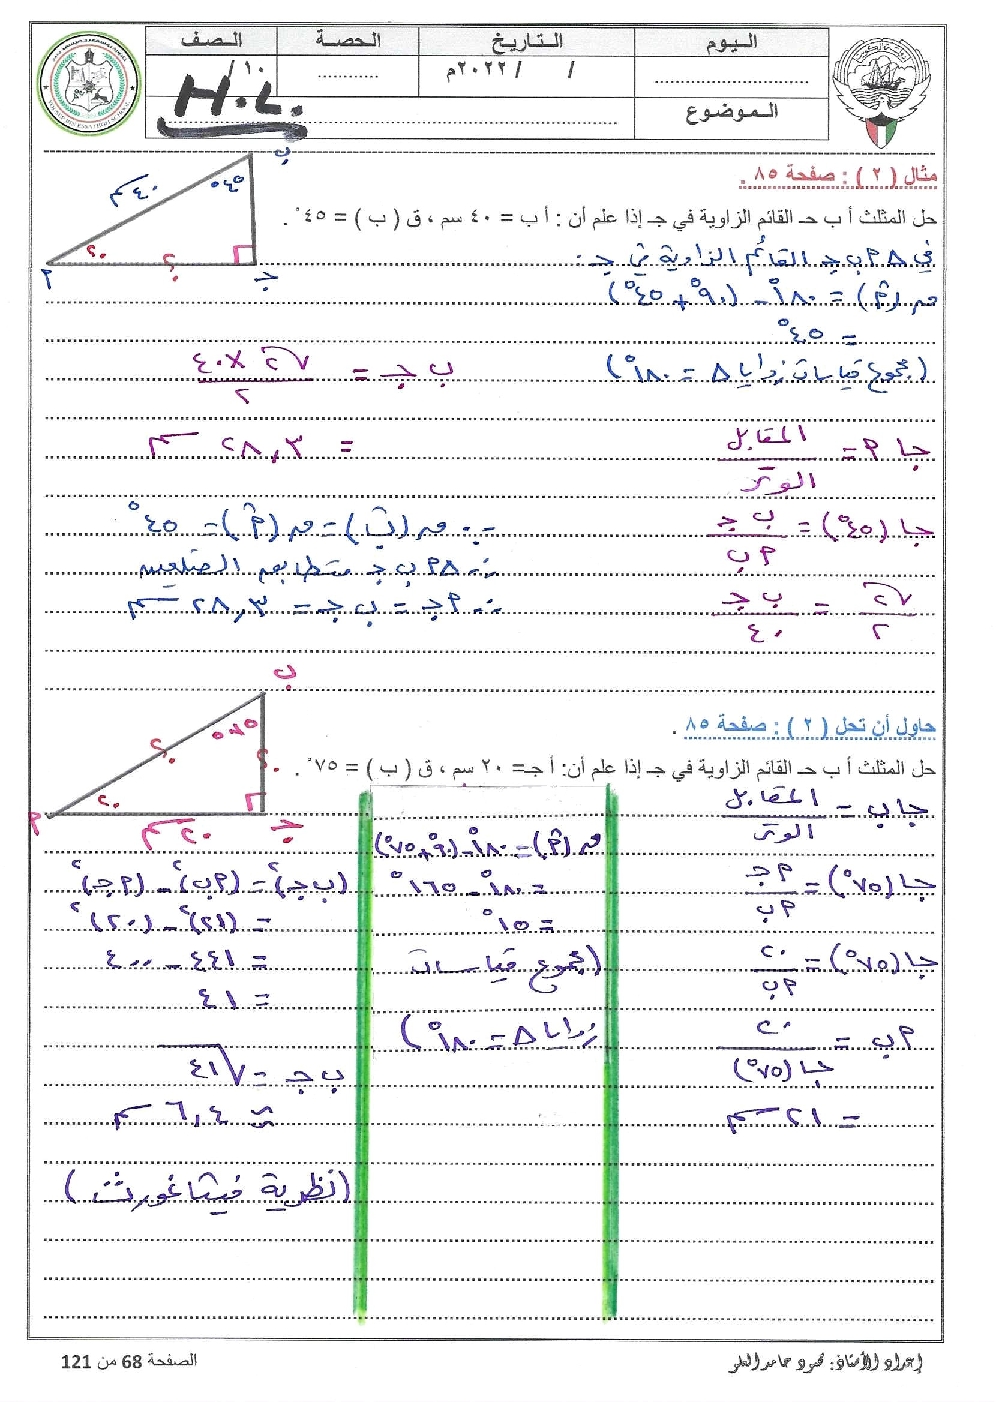 اليوم
التاريخ
الحصة
الصف
/ / ٢٠٢٢م
١٠ /
الموضوع
H.L.
مثال ( ٢ ) : صفحة ٨٥ .
حل المثلث أ ب جـ القائم الزاوية في جـ إذا علم أن : أ ب = ٤٠ سم ، ق ( ب ) = ٤٥ ° .
ب
٤٥°
٤٠ سم
؟
؟
م
جـ
في △ م ب جـ القائم الزاوية في جـ :
ق (م̂) = ١٨٠° - (٩٠° + ٤٥°)
= ٤٥°
(مجموع قياسات زوايا △ = ١٨٠°)
جا م = المقابل / الوتر
جا (٤٥°) = ب جـ / م ب
√٢ / ٢ = ب جـ / ٤٠
ب جـ = ٤٠ × √٢ / ٢
= ٢٨,٣ سم
∵ ق (ب̂) = ق (م̂) = ٤٥°
∴ △ م ب جـ متطابق الضلعين
∴ م جـ = ب جـ = ٢٨,٣ سم
حاول أن تحل ( ٢ ) : صفحة ٨٥ .
حل المثلث أ ب جـ القائم الزاوية في جـ إذا علم أن: أ جـ= ٢٠ سم ، ق ( ب ) = ٧٥ ° .
ب
٧٥°
؟
؟
؟
م
٢٠ سم
جـ
جا ب = المقابل / الوتر
جا (٧٥°) = م جـ / م ب
جا (٧٥°) = ٢٠ / م ب
م ب = ٢٠ / جا (٧٥°)
= ٢١ سم
ق (م̂) = ١٨٠° - (٩٠° + ٧٥°)
= ١٨٠° - ١٦٥°
= ١٥°
(مجموع قياسات
زوايا △ = ١٨٠°)
(ب جـ)² = (م ب)² - (م جـ)²
= (٢١)² - (٢٠)²
= ٤٤١ - ٤٠٠
= ٤١
ب جـ = √٤١
≈ ٦,٤ سم
(نظرية فيثاغورث)
إعداد الأستاذ: محمود حامد العلو
الصفحة 68 من 121